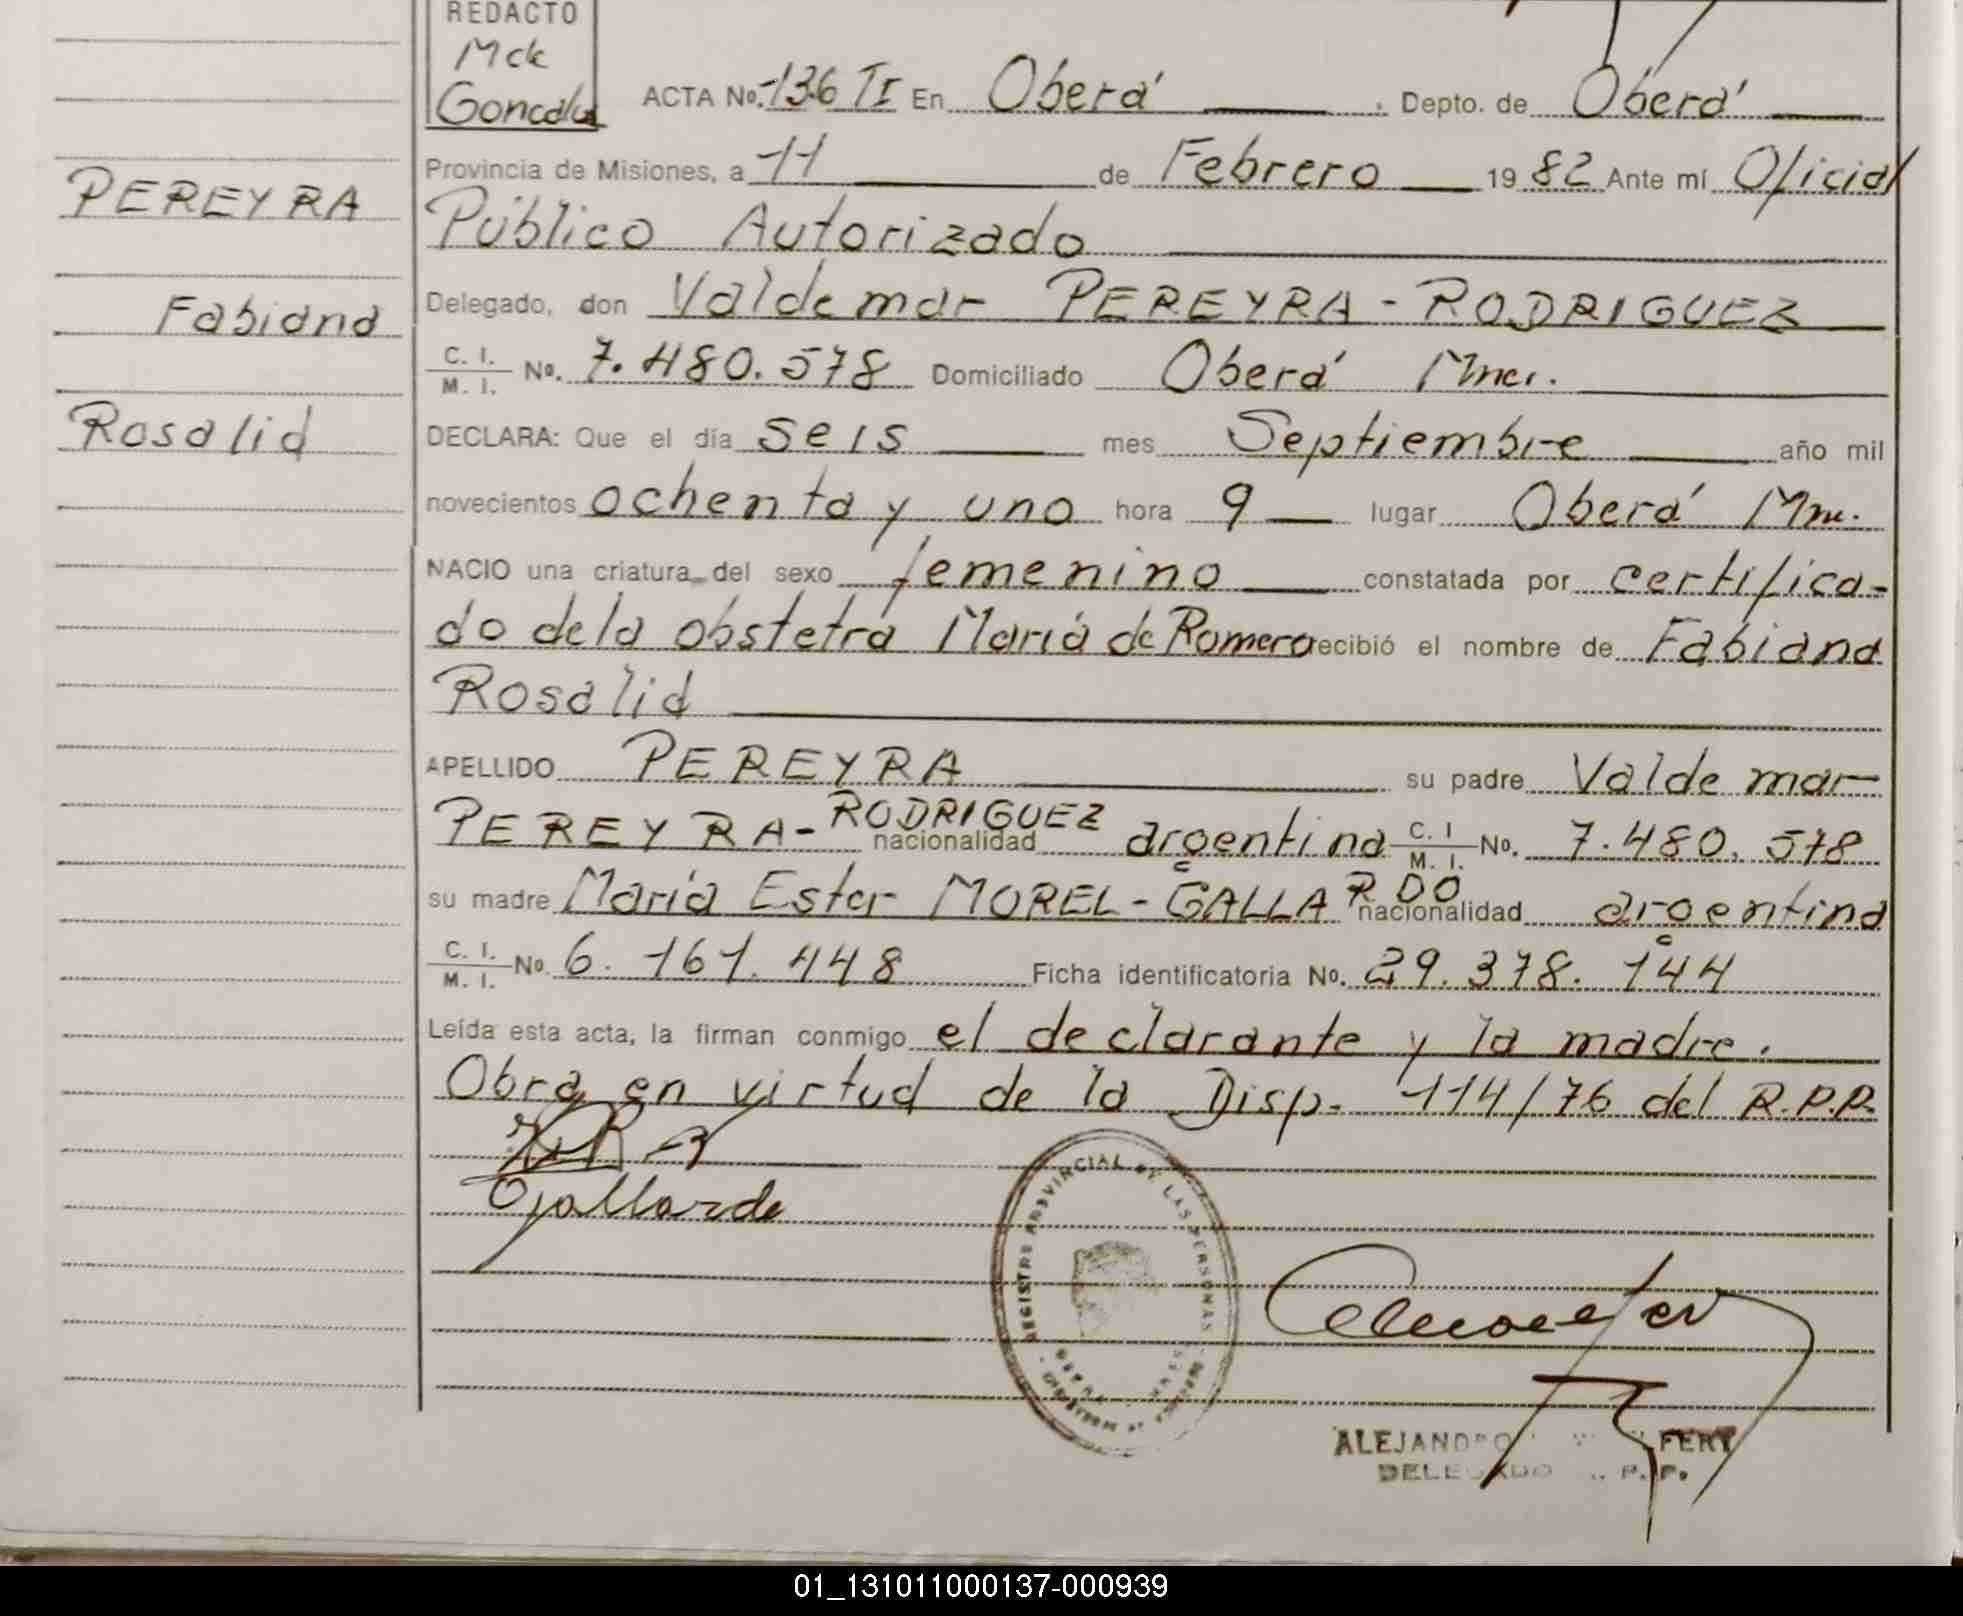 REDACTO
Mck
ACTA No. 136 TI En Oberá . Depto. de Oberá
Provincia de Misiones, a 11 de Febrero 1982 Ante mí Oficial
Público Autorizado
Delegado, don Valdemar PEREYRA - RODRIGUEZ
C. I. / M. I. No. 7.480.578 Domiciliado Oberá
DECLARA: Que el día seis mes Septiembre año mil
novecientos ochenta y uno hora 9 lugar Oberá
NACIO una criatura del sexo femenino constatada por certifica-
do de la obstetra María de Romero recibió el nombre de Fabiana
Rosalia
APELLIDO PEREYRA su padre Valdemar
PEREYRA - RODRIGUEZ nacionalidad argentina C. I / M. I. No. 7.480.578
su madre María Ester MOREL - GALLARDO nacionalidad argentina
C. I. / M. I. No. 6.161.448 Ficha identificatoria No. 29.378.144
Leída esta acta, la firman conmigo el declarante y la madre.
Obra en virtud de la Disp. 114/76 del R.P.P.
PEREYRA
Fabiana
Rosalia
REGISTRO PROVINCIAL DE LAS PERSONAS
ALEJANDRO
DELEGADO
01_131011000137-000939